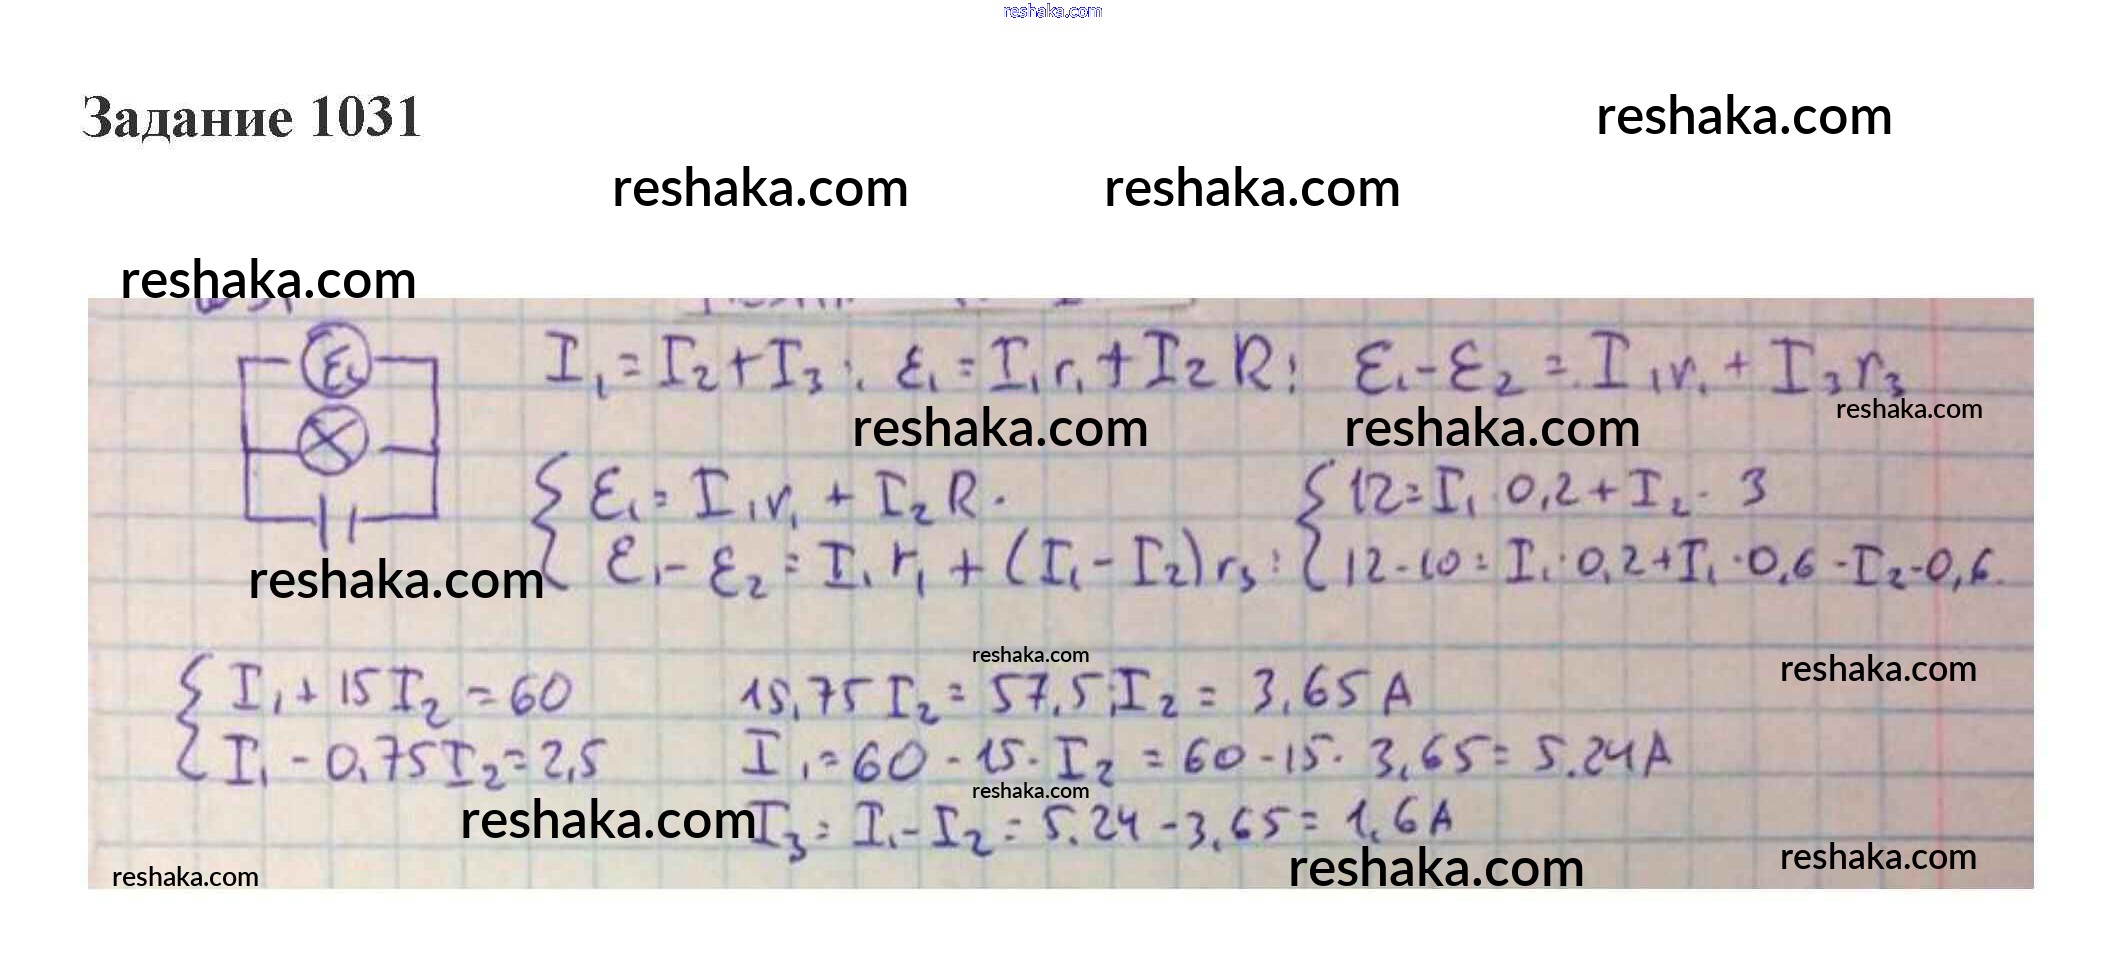 reshaka.com
Задание 1031
reshaka.com
reshaka.com reshaka.com
reshaka.com
I₁ = I₂ + I₃ ; ε₁ = I₁r₁ + I₂ R ; ε₁ - ε₂ = I₁r₁ + I₃r₃
reshaka.com
reshaka.com reshaka.com
ε₁
{ ε₁ = I₁r₁ + I₂ R . { 12 = I₁ · 0,2 + I₂ · 3
ε₁ - ε₂ = I₁r₁ + (I₁ - I₂)r₃ : 12 - 10 = I₁ · 0,2 + I₁ · 0,6 - I₂ - 0,6.
reshaka.com
reshaka.com
reshaka.com
{ I₁ + 15I₂ = 60 15,75I₂ = 57,5; I₂ = 3,65 A
I₁ - 0,75I₂ = 2,5 I₁ = 60 - 15 · I₂ = 60 - 15 · 3,65 = 5.24A
reshaka.com
reshaka.com I₃ = I₁ - I₂ = 5.24 - 3,65 = 1,6A
reshaka.com reshaka.com
reshaka.com